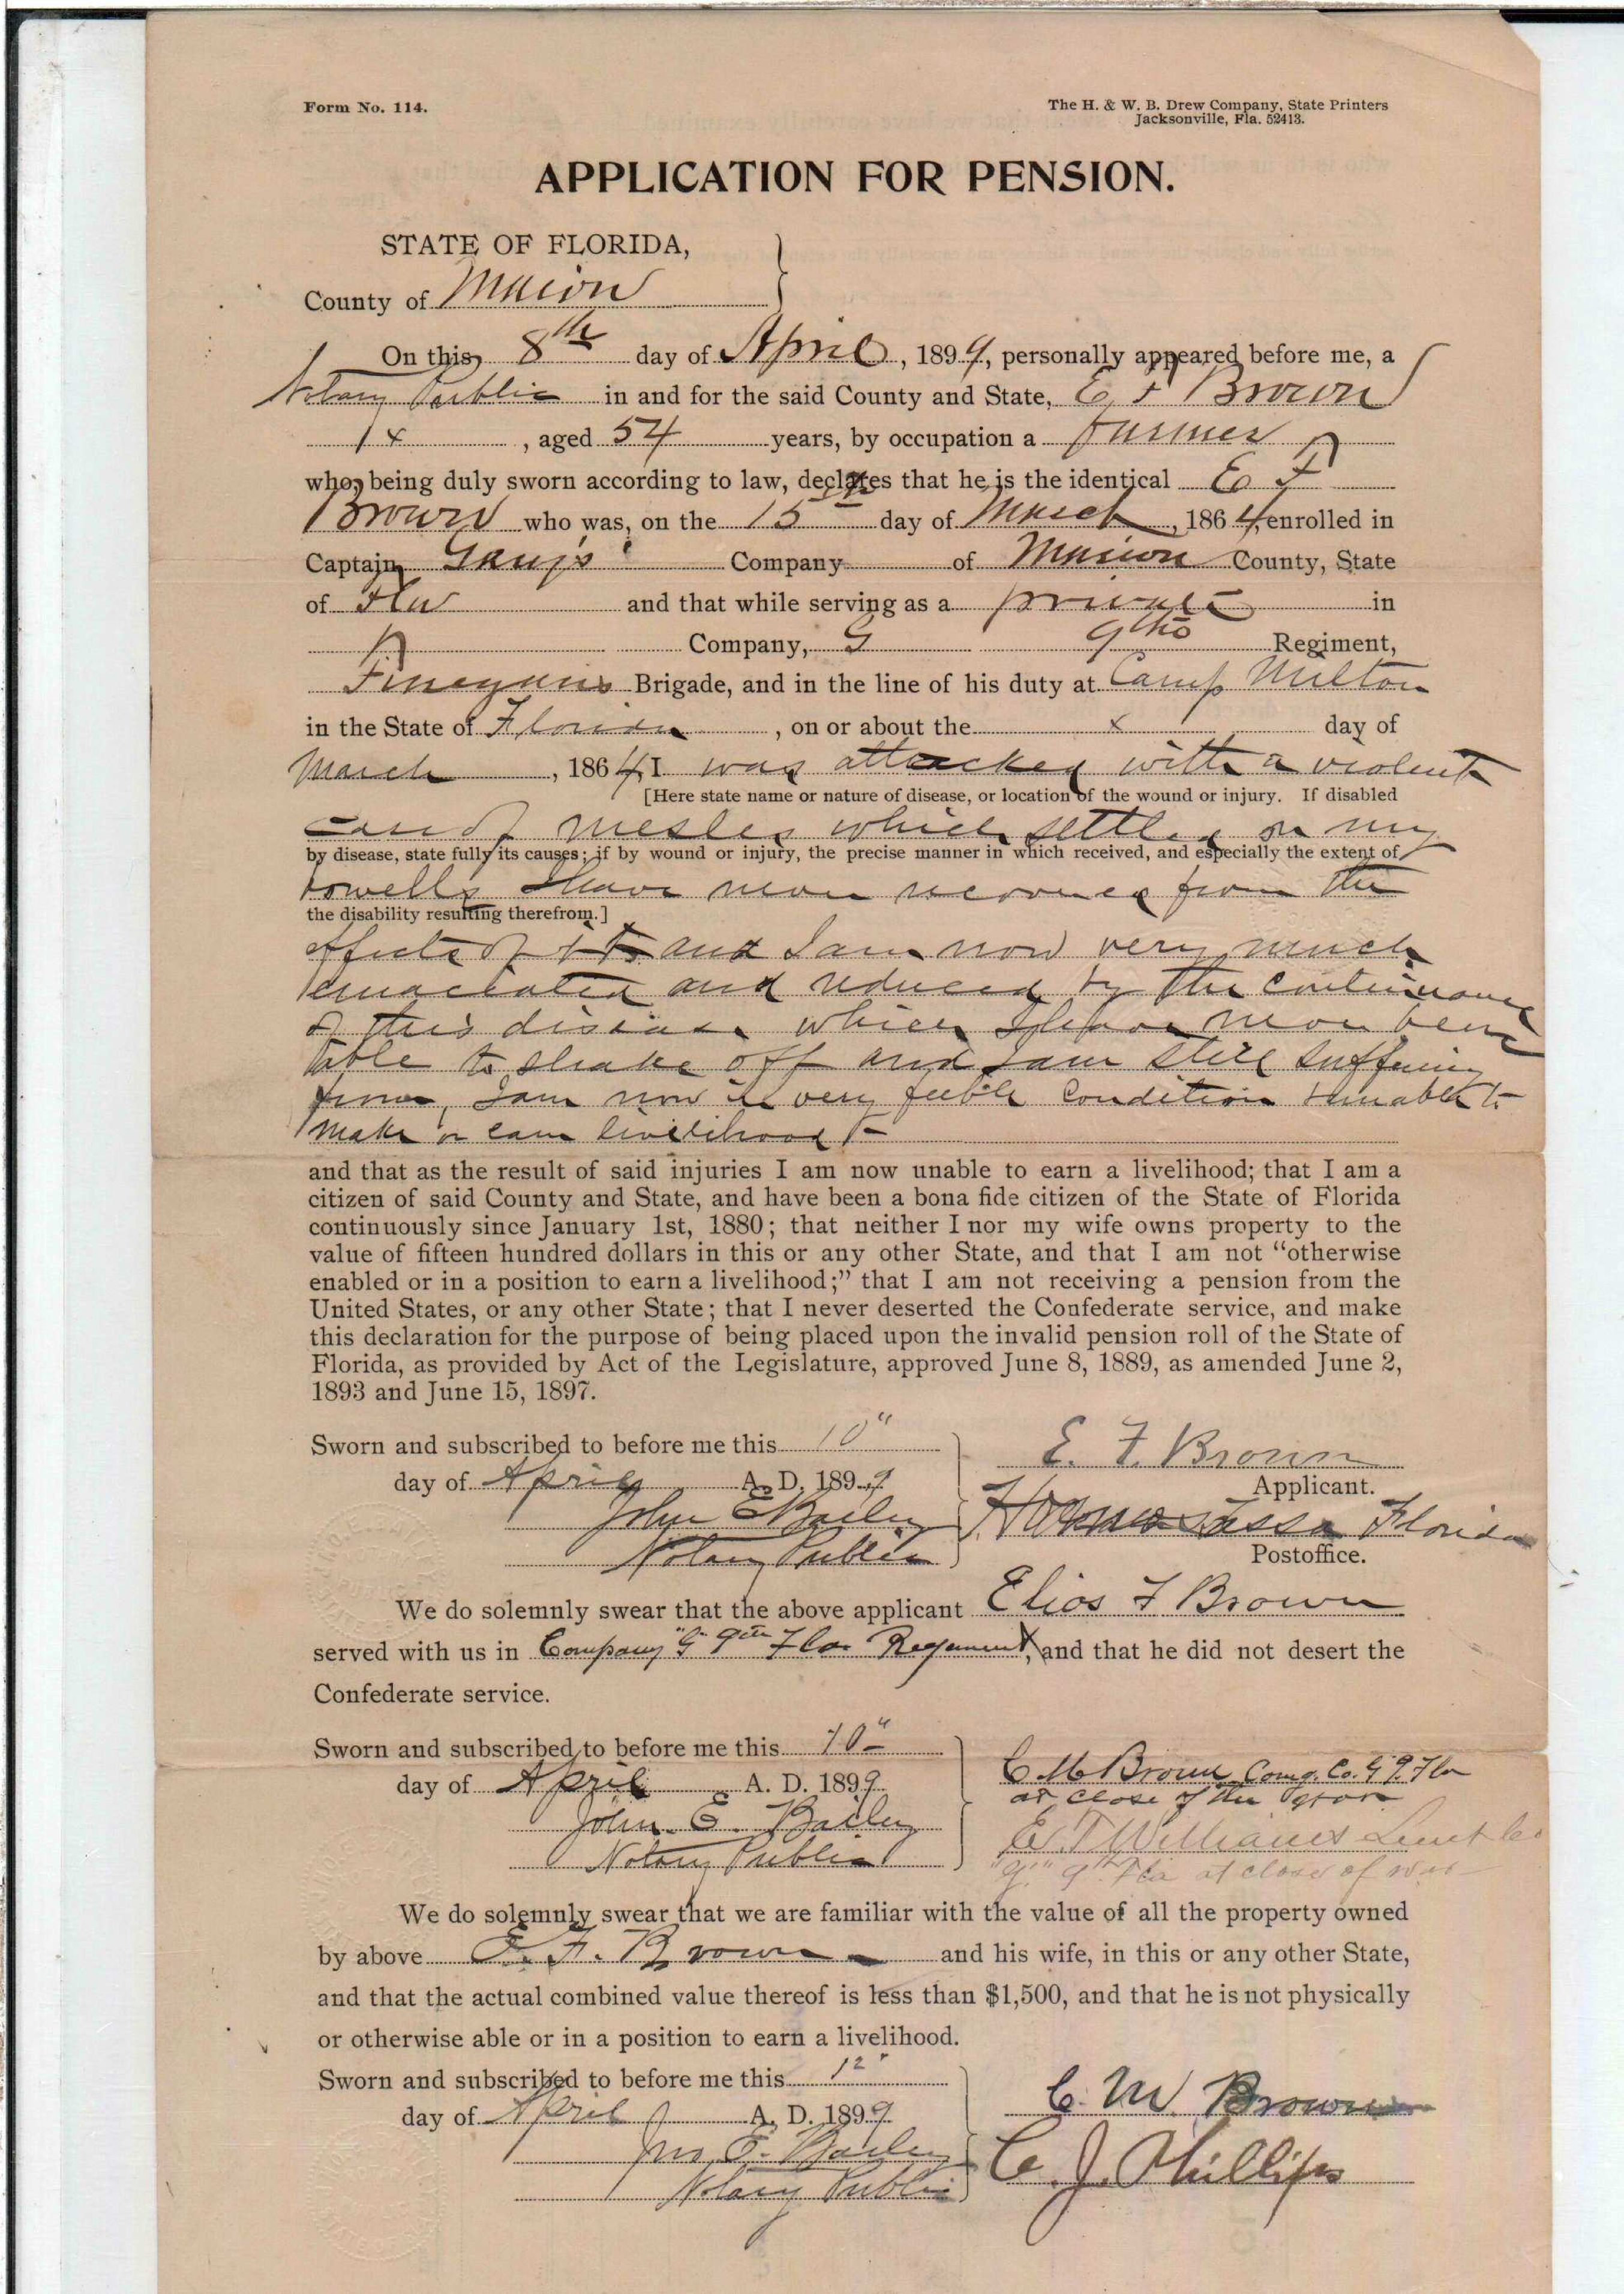 Form No. 114.
The H. & W. B. Drew Company, State Printers
Jacksonville, Fla. 52413.
APPLICATION FOR PENSION.
STATE OF FLORIDA,
County of Marion
On this 8th day of April, 1899, personally appeared before me, a
Notary Public in and for the said County and State, E F Brown
x, aged 54 years, by occupation a farmer
who, being duly sworn according to law, declares that he is the identical E F
Brown who was, on the 15th day of March, 1864, enrolled in
Captain Company of Marion County, State
of Fla and that while serving as a private in
Company, G 9th Regiment,
Finegans Brigade, and in the line of his duty at Camp Milton
in the State of Florida, on or about the x day of
March, 1864, I was attacked with a violent
[Here state name or nature of disease, or location of the wound or injury. If disabled
case of mesles which settled on my
by disease, state fully its causes; if by wound or injury, the precise manner in which received, and especially the extent of
bowells I have never recovered from the
the disability resulting therefrom.]
effects of it and I am now very much
emaciated and reduced by the continuance
of this disease which I have never been
able to shake off and I am still suffering
from, I am now in very feeble condition & unable to
make or earn livelihood
and that as the result of said injuries I am now unable to earn a livelihood; that I am a
citizen of said County and State, and have been a bona fide citizen of the State of Florida
continuously since January 1st, 1880; that neither I nor my wife owns property to the
value of fifteen hundred dollars in this or any other State, and that I am not "otherwise
enabled or in a position to earn a livelihood;" that I am not receiving a pension from the
United States, or any other State; that I never deserted the Confederate service, and make
this declaration for the purpose of being placed upon the invalid pension roll of the State of
Florida, as provided by Act of the Legislature, approved June 8, 1889, as amended June 2,
1893 and June 15, 1897.
Sworn and subscribed to before me this 10"
E. F. Brown
day of April A. D. 1899
Applicant.
John E Bailey
Homosassa Florida
Notary Public
Postoffice.
We do solemnly swear that the above applicant Elios F Brown
served with us in Company "G" 9th Fla Regement, and that he did not desert the
Confederate service.
Sworn and subscribed to before me this 10"
C M Brown Comg. Co. G 9. Fla
day of April A. D. 1899
at close of the war
John E. Bailey
E. T Williams Lieut Co
Notary Public
"G" 9th Fla at close of war
We do solemnly swear that we are familiar with the value of all the property owned
by above E. F. Brown and his wife, in this or any other State,
and that the actual combined value thereof is less than $1,500, and that he is not physically
or otherwise able or in a position to earn a livelihood.
Sworn and subscribed to before me this 12"
C. M. Brown
day of April A. D. 1899
Jno. E. Bailey
C. J. Phillips
Notary Public